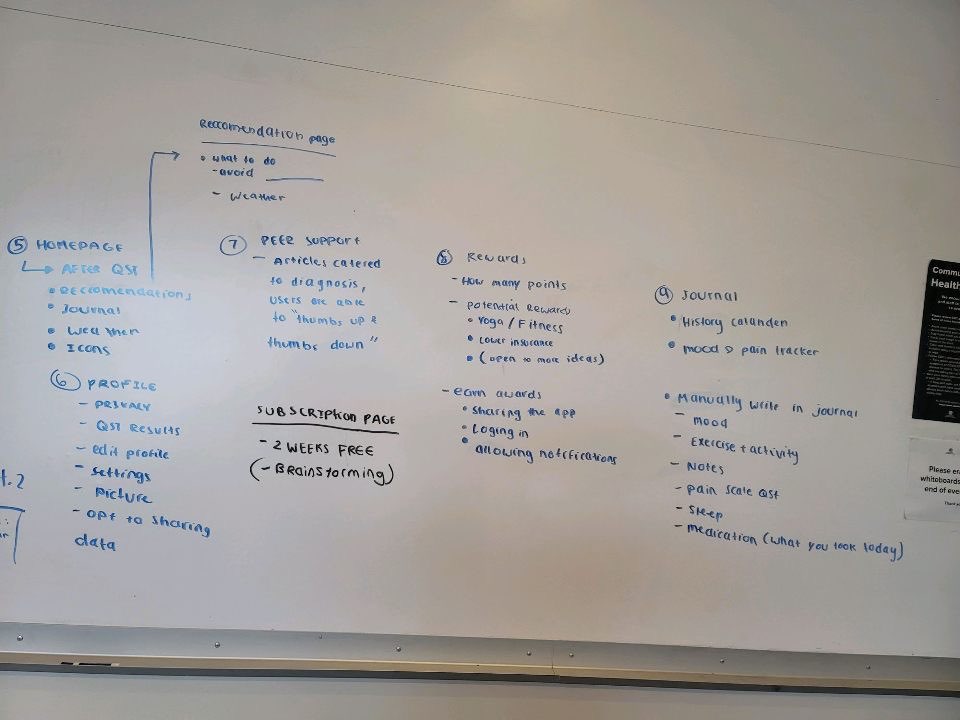 Reccomendation page
• what to do
- avoid ____
- Weather
⑤ HOMEPAGE
↳ AFTER QST
• reccomendations
• Journal
• Weather
• Icons
⑥ PROFILE
- privacy
- QST Results
- edit profile
- settings
- picture
- opt to sharing
data
⑦ PEER SUPPORT
- Articles catered
to diagnosis,
users are able
to "thumbs up &
thumbs down"
SUBSCRIPTION PAGE
- 2 WEEKS FREE
(- BRAINSTORMING)
⑧ Rewards
- How many points
- potential Rewards
• Yoga / Fitness
• Lower insurance
• (open to more ideas)
- earn awards
• Sharing the app
• Loging in
• allowing notifications
⑨ Journal
• History calander
• mood & pain tracker
• Manually write in journal
- mood
- Exercise + activity
- Notes
- pain scale QST
- Sleep
- medication (what you took today)
Commu
Health
Please er
whiteboards
end of eve